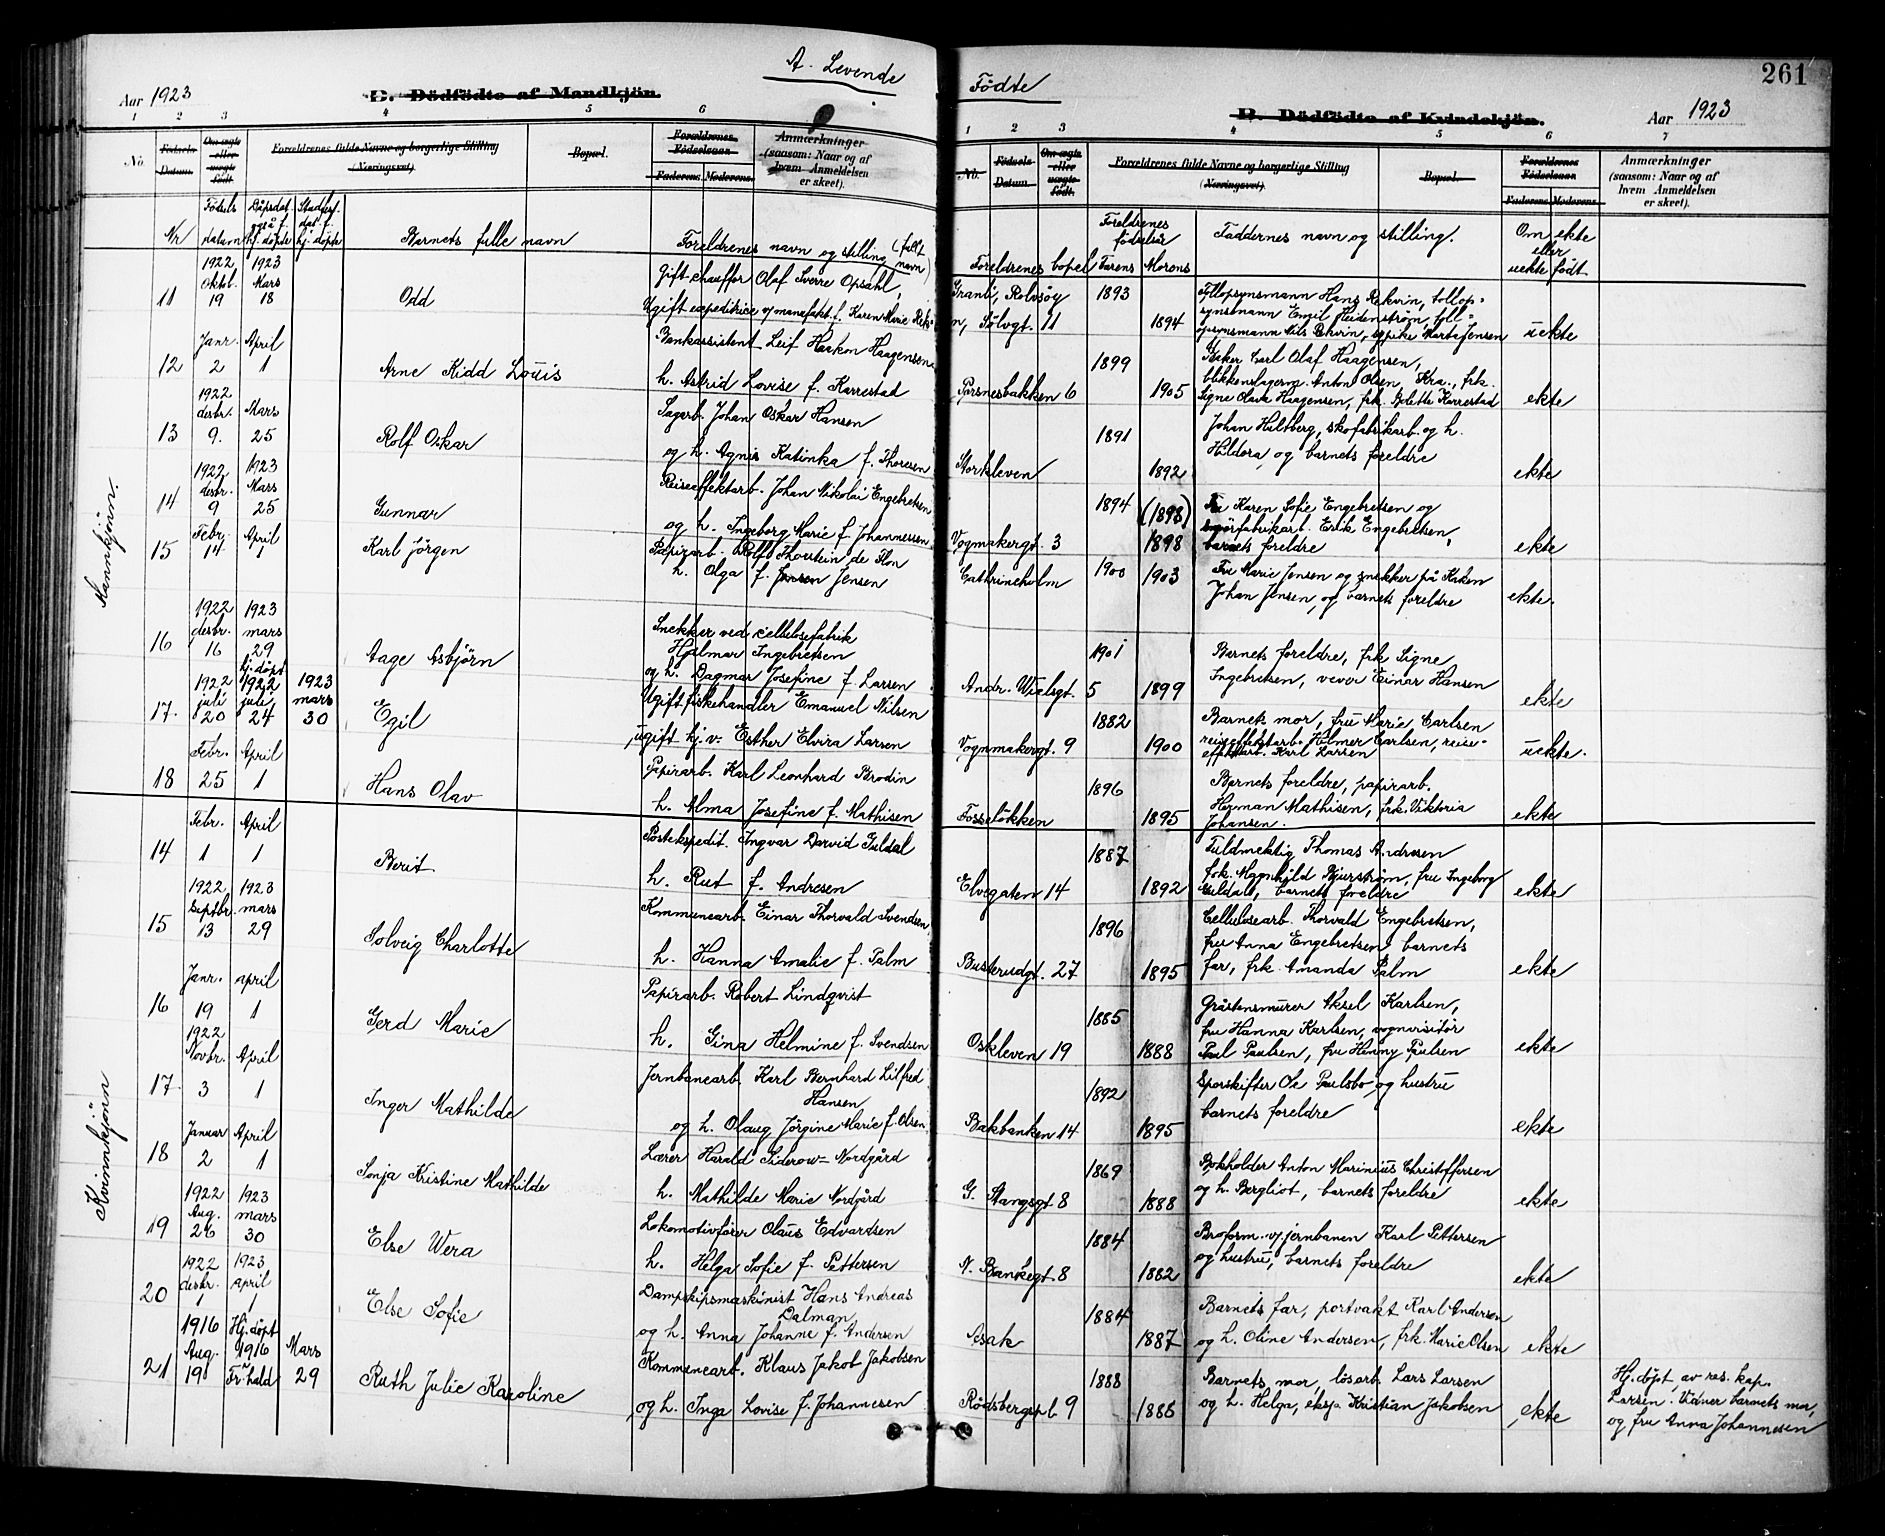 261
A. Levende
Födte
Aar 1923
C. Dödfödte af Mandkjön.
B. Dödfödte af Kvindekjön.
Aar 1923
1 2 3 4 5 6
1 2 3 4 5 6 7
No. Födsels-Datum. Om ægte eller uægte födt. Forældrenes fulde Navne og borgerlige Stilling (Næringsvei). Bopæl. Forældrenes Födselsaar. Faderens. Moderens. Anmærkninger (saasom: Naar og af hvem Anmeldelsen er skeet).
No. Födsels-Datum. Om ægte eller uægte födt. Forældrenes fulde Navne og borgerlige Stilling (Næringsvei). Bopæl. Forældrenes Födselsaar. Faderens. Moderens. Anmærkninger (saasom: Naar og af hvem Anmeldelsen er skeet).
Nr Födsels datum Dåpsdat. hj. döpte Stadfest. dat. hj. döpte Barnets fulle navn Foreldrenes navn og stilling (fullt navn)
Foreldrenes bopel Foreldrenes födselsår Farens Morens Faddernes navn og stilling. Om ekte eller uekte födt
Mannkjönn.
11 1922 Oktbr. 19 1923 Mars 18 Odd Gift chaufför Olaf Sverre Opsahl,
Ugift expeditrice v/ manufakt.f. Karen Marie Rek-
Granli, Rolvsöy 1893 Tollopsynsmann Hans Rekvin, tollop-
n, Sölvgt. 11 1894 synsmann Emil Heidenström, toll-
opsynsmann Nils Rekvin, sypike Marta Jensen uekte
12 Janr. 2 April 1 Arne Kidd Louis Bankassistent Leif Haakon Haagensen
h. Astrid Lovise f. Karrestad
1899 Baker Carl Olaf Haagensen,
blikkenslagerm. Anton Olsen, Kra., frk.
6 1905 Signe Olava Haagensen, frk. Bolette Karrestad ekte
13 1922 desbr. 9. Mars 25 Rolf Oskar Sagarb. Johan Oskar Hansen
og h. Agnes Katinka f. Thoresen
1891 Johan Hultberg, skofabrikarb. og h.
Storkleven 1892 Hildora, og barnets foreldre ekte
14 1922 desbr. 9 1923 Mars 25 Gunnar Reiseeffektarb. Johan Nikolai Engebretsen
og h. Ingeborg Marie f. Johannessen
1894 (1898) Fru Karen Sofie Engebretsen og
smörfabrikarb. Erik Engebretsen,
Vognmakergt. 3 1898 barnets foreldre ekte
15 Febr. 14 April 1 Karl Jörgen Papirarb. Rolf Thorstein de Flon
h. Olga f. Jensen
Cathrineholm 1900 1903 Fru Marie Jensen og snekker på
Johan Jensen, og barnets foreldre ekte.
16 1922 desbr. 16 1923 mars 29 Aage Asbjörn Snekker ved cellulosefabrik
Hjalmar Ingebretsen
og h. Dagmar Josefine f. Larsen
1901 Barnets foreldre, frk Signe
Andr. Wielsgt. 5 1899 Ingebretsen, vever Einar Hansen ekte
17. 1922 juli 20 hj. döpt 1922 juli 24 1923 mars 30 Egil Ugift fiskehandler Emanuel Nilsen
ugift hj.v. Esther Elvira Larsen
1882 Barnets mor, fru Marie Carlsen
Vognmakergt. 9 1900 reiseeffektarb. Hilmer Carlsen, reise-
effektarb. Karl Larsen uekte.
18 Febr. 25 April 1 Hans Olav Papirarb. Karl Leonhard Brodin
h. Alma Josefine f. Mathisen
1896 Barnets foreldre, papirarb.
Fosselökken 1895 Herman Mathisen, frk. Viktoria
Johansen. ekte
Kvinnekjönn
14 Febr. 1 April 1 Berit Postekspedit. Ingvar Darvid Guldal
h. Rut f. Andresen
1887 Fuldmektig Thomas Andresen
Elvegaten 14 1892 frk. Magnhild Bjurström, fru Ingeborg
Guldal, barnets foreldre ekte
15 1922 Septbr. 13 1923 mars 29 Solveig Charlotte Kommunearb. Einar Thorvald Svendsen,
h. Hanna Amalie f. Palm
1896 Cellulosearb. Thorvald Engebretsen,
fru Anna Engebretsen, barnets
Busterudgt. 27 1895 far, frk. Amanda Palm ekte
16 Janr. 19 april 1 Gerd Marie Papirarb. Robert Lindqvist
h. Gina Helmine f. Svendsen
1885 Gråstensmurer Aksel Karlsen,
fru Hanna Karlsen, vognvisitör
Oskleven 19 1888 Paul Paulsen, fru Henny Paulsen ekte
17 1922 Novbr. 3 April 1 Inger Mathilde Jernbanearb. Karl Bernhard Lilfred
Hansen
og h. Olaug Jörgine Marie f. Olsen,
1892 Sporskifter Ole Paulsbo og hustru
Bakbanken 14 1895 barnets foreldre ekte
18 Januar 2 April 1 Sonja Kristine Mathilde Lærer Harald Siderow-Nordgård
h. Mathilde Marie Nordgård
1869 Bokholder Anton Marinius Christoffersen
G. Stangsgt 8 1888 og h. Bergliot, barnets foreldre ekte
19 1922 Aug. 26 1923 mars 30 Else Wera Lokomotivförer Olaus Edvardsen
h. Helga Sofie f. Pettersen
1884 Broform. v/ jernbanen Karl Pettersen
N. Bankegt 8 1882 og hustru, barnets foreldre ekte
20 1922 desbr. 1 1923 april 1 Else Sofie Dampskipsmaskinist Hans Andreas
Dalman
og h. Anna Johanne f. Andersen
1884 Barnets far, portvakt Karl Andersen
Asak 1887 og h. Oline Andersen, frk. Marie Olsen ekte
21 1916 Aug. 19 Hj. döpt 1916 Fr.hald Mars 29 Ruth Julie Karoline Kommunearb. Klaus Jakob Jakobsen
og h. Inga Lovise f. Johannesen
1888 Barnets mor, lösarb. Lars Larsen
Rödsbergspl. 9 1888 og h. Helga, Kristian Jakobsen ekte
Hj. döpt av res. kap.
Larsen. Vidner barnets mor,
og fru Anna Johannesen